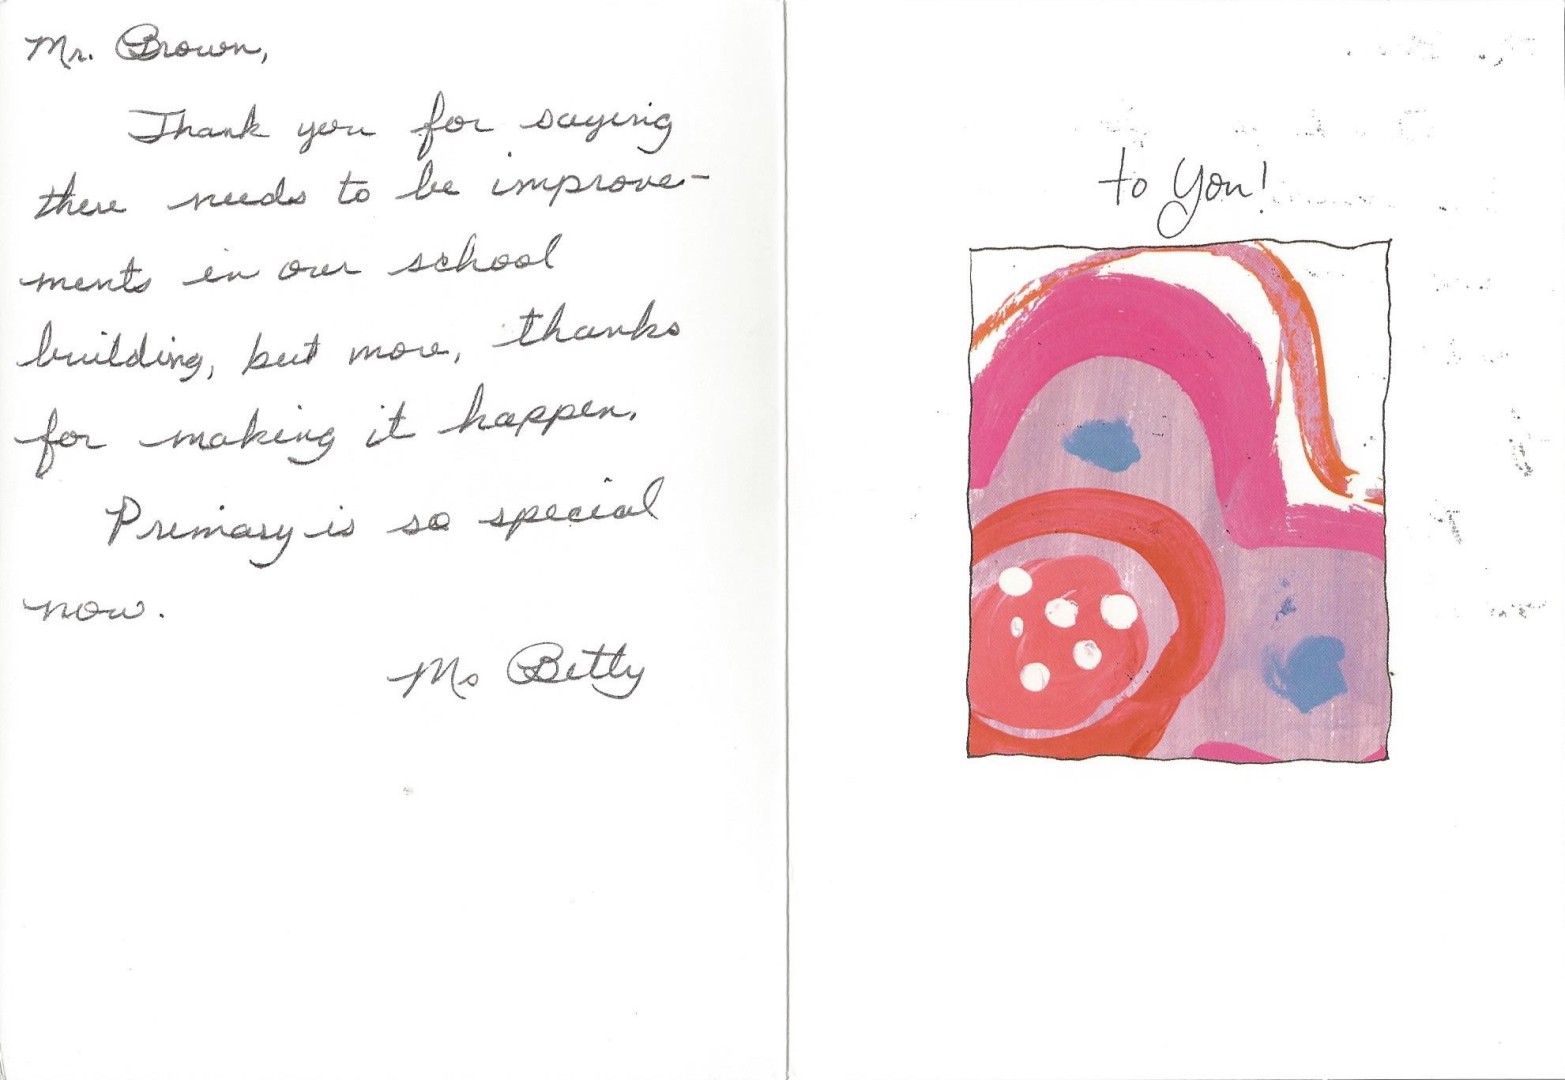 Mr. Brown,
Thank you for saying
there needs to be improve-
ments in our school
building, but more, thanks
for making it happen.
Primary is so special
now.
Ms Betty
to you!